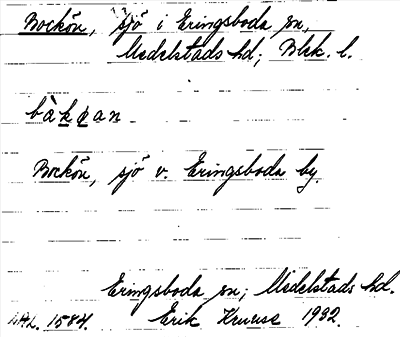 Bockön, sjö i Eringsboda sn,
Medelstads hd; Blek. l.
bàkøan
Bockön, sjö v. Eringsboda by.
Eringsboda sn; Medelstads hd.
LAL. 1584. Erik Kruuse 1932.